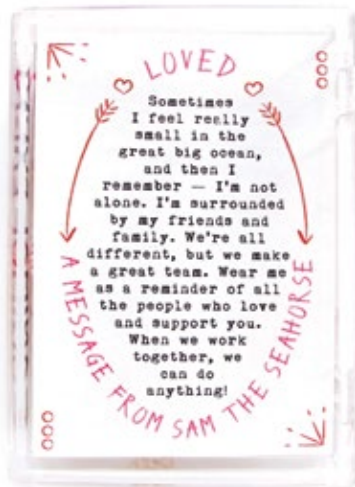 LOVED
Sometimes
I feel really
small in the
great big ocean,
and then I
remember — I'm not
alone. I'm surrounded
by my friends and
family. We're all
different, but we make
a great team. Wear me
as a reminder of all
the people who love
and support you.
When we work
together, we
can do
anything!
A MESSAGE FROM SAM THE SEAHORSE